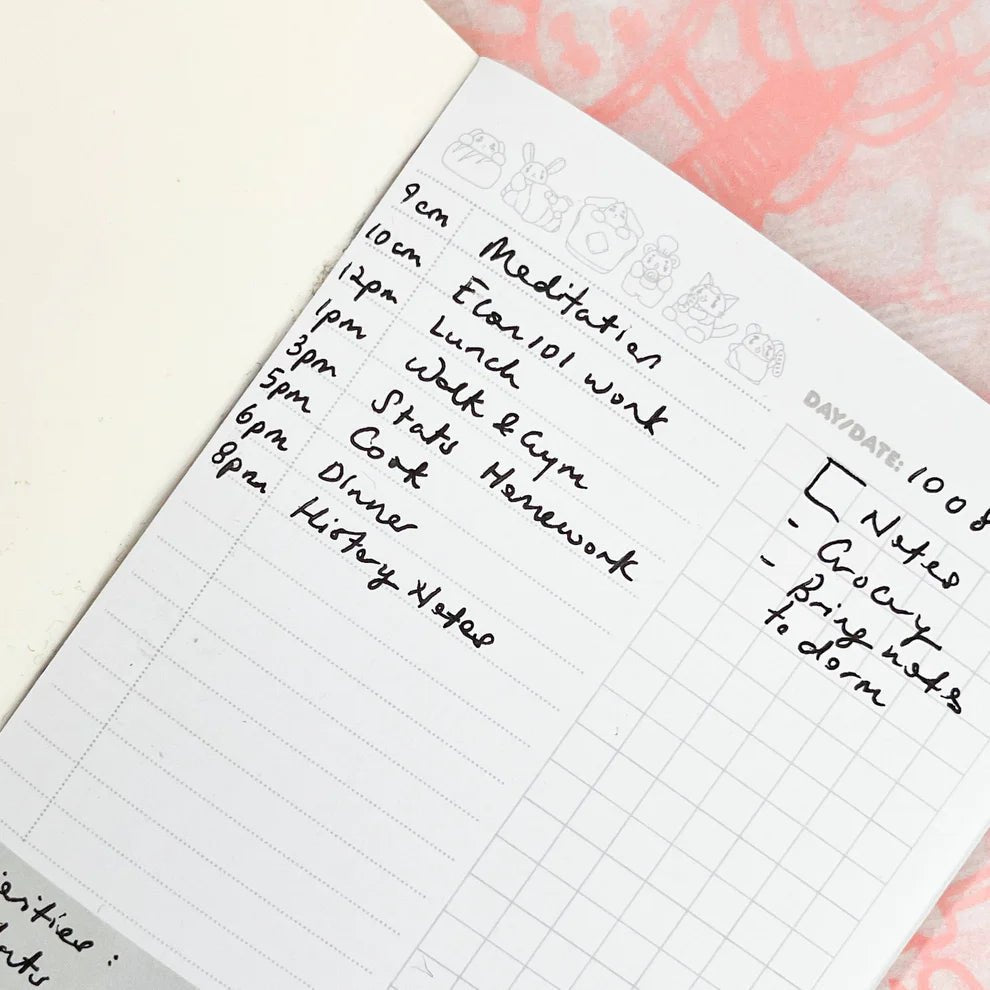 9am Meditation
10am Econ101 work
12pm Lunch
1pm Walk & Gym
3pm Stats Homework
5pm Cook
6pm Dinner
8pm History Notes
DAY/DATE: 1008
Notes
- Grocery
- Bring notes
to dorm